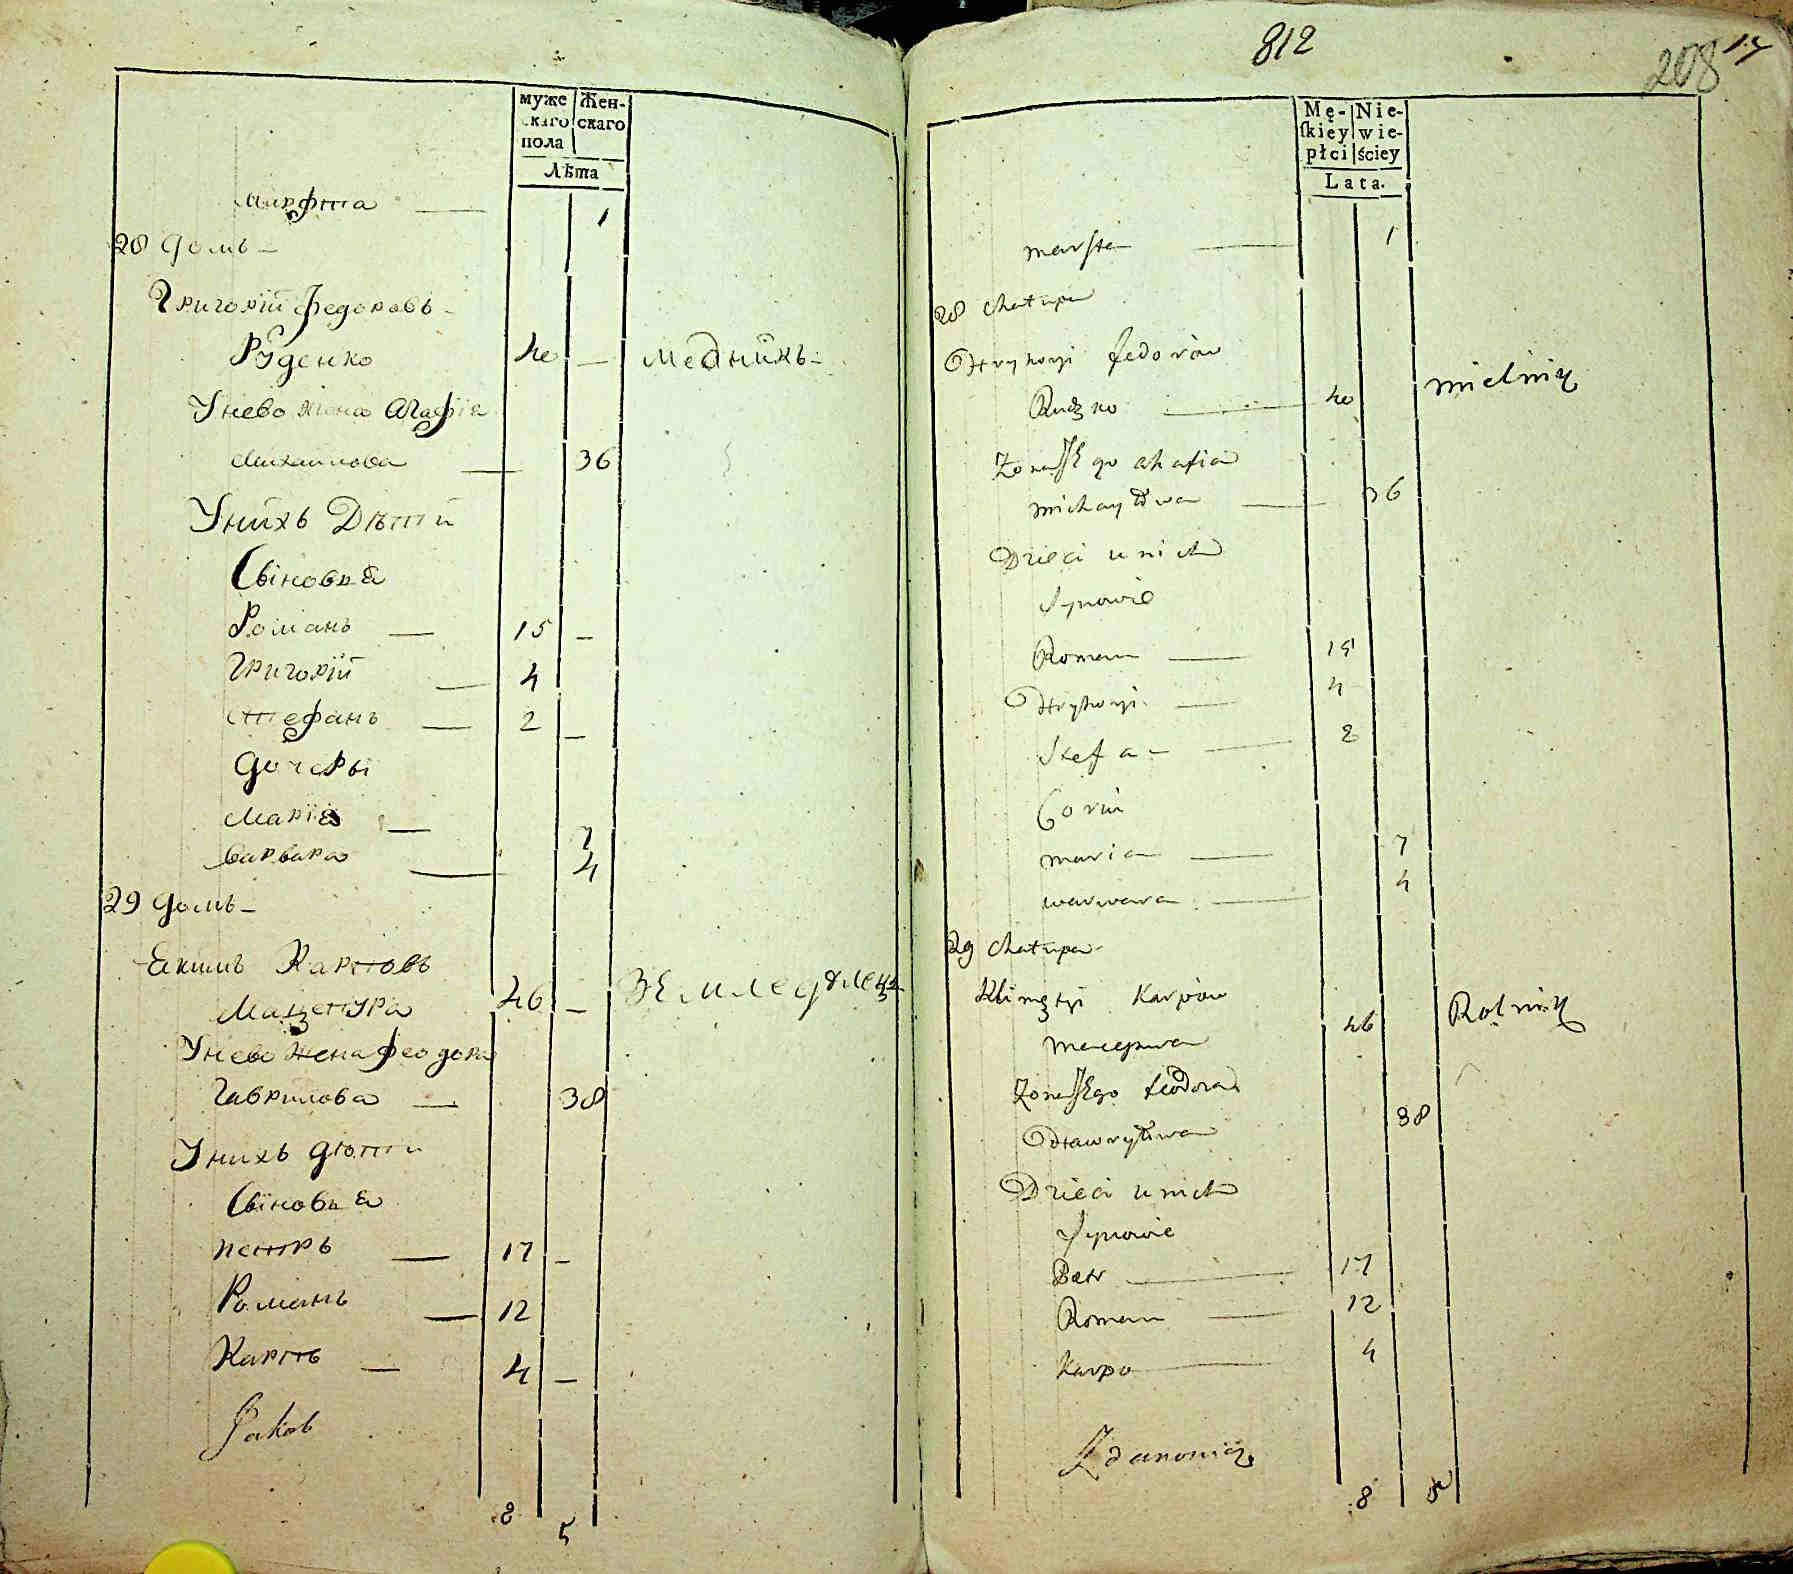 муже Жен-
скаго скаго
пола
Лѣта
Марфта — 1
28 домъ —
Григорій Федоровъ
Руденко 40 — медникъ
Унево жена Агафіа
Михаилова — 36
Унихъ Дѣти
Сіновья
Романъ — 15 —
Григорій — 4
Стефанъ — 2 —
дочеры
Маріа — 7
Варвара — 4
29 домъ —
Карповъ
Маценура 46 — Земледѣлецъ
Унево жена Феодора
Гаврилова — 38
Унихъ дѣти
Сіновья
петръ — 17 —
Романъ — 12
Карпъ — 4 —
Jakob
8 5
812
208
Mę- Nie-
ſkiey wie-
płci ściey
Lata.
marfta — 1
28 chatupa
Hryhoryi fedorów
Rudzko — 40 mielnik
Zona Jego ahafia
michayłowa — 36
Dzieci unich
Synowie
Roman — 15
Hryhoryi — 4
Stefan — 2
Corki
maria — 7
warwara — 4
29 chatupa
Karpow
46 Rolnik
Zona Jego teodora
Hawryłowa 38
Dzieci unich
Synowie
Petr — 17
Roman — 12
Karpo — 4
Zdanowicz
8 5